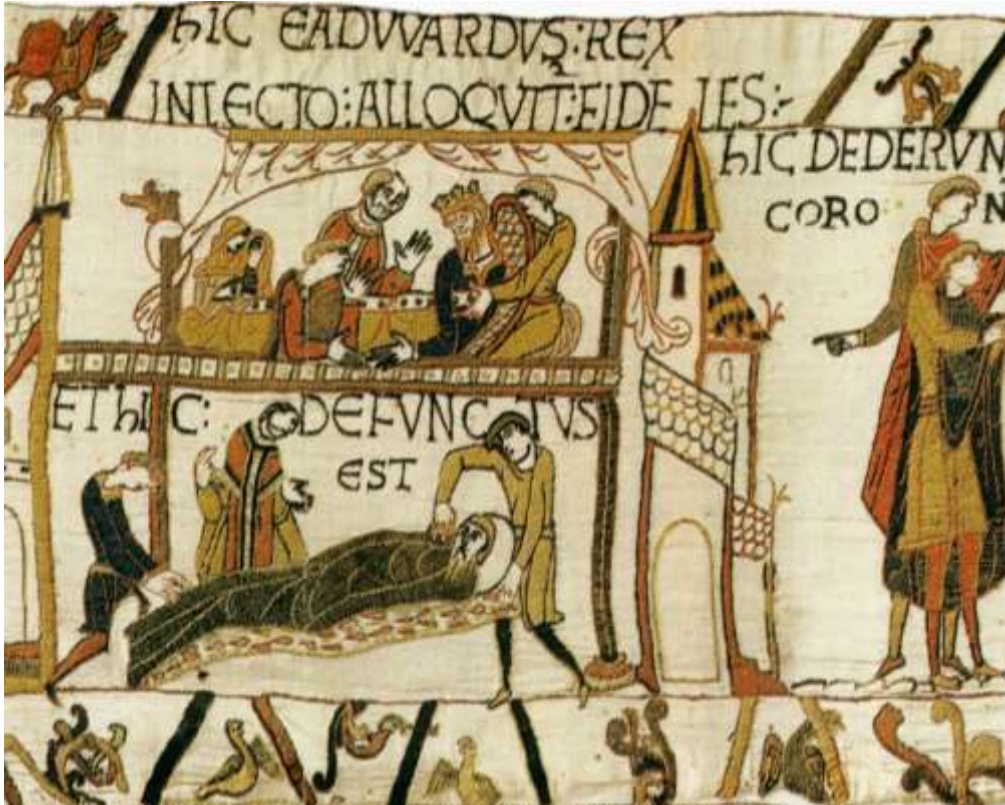 hIC EADVVARDVS:REX
INLECTO:ALLOQVIT:FIDELES:-
hIC DEDERVN
CORO N
ET hIC: DEFUNCTUS
EST